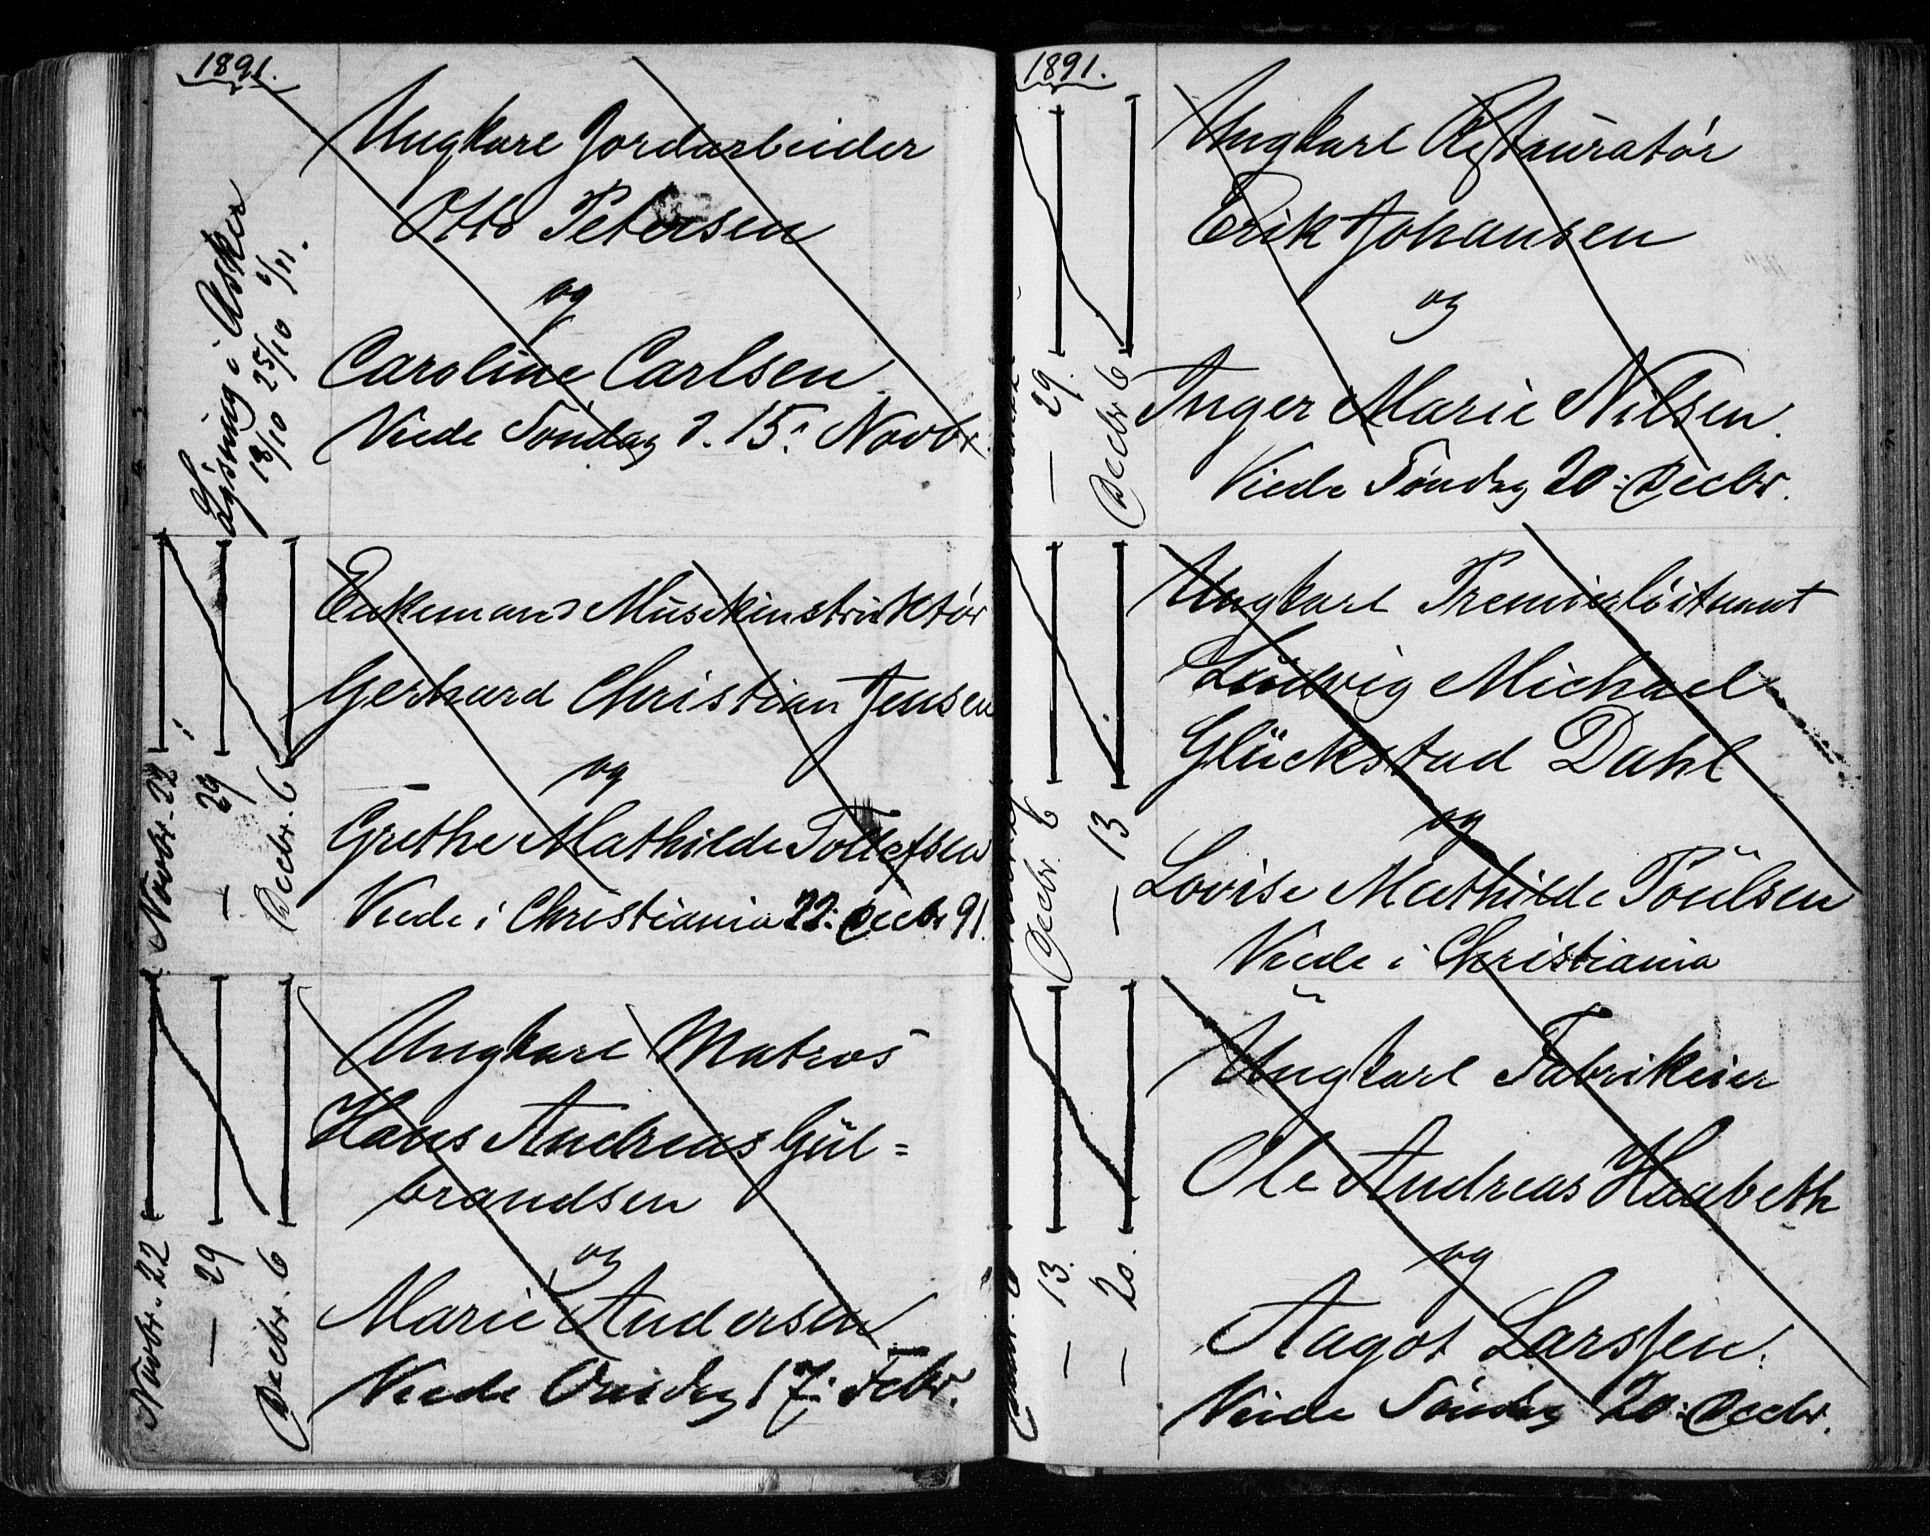 1891.
Ungkarl Jordarbeider
Otto Petersen
og
Caroline Carlsen
Viede Søndag d. 15: Novbr.
Lysning i Asker
18/10 25/10 1/11.
Enkemand Musikinstruktør
Gerhard Christian Jensen
og
Grethe Mathilde Tollefsen
Viede i Christiania 22: Decbr 91.
Novbr. 22
— 29
Decbr. 6
Ungkarl Matros
Hans Andreas Gul=
brandsen
og
Marie Andersen
Viede Onsdag 17: Febr.
Novbr. 22
— 29
Decbr. 6
1891.
Ungkarl Restauratør
Erik Johansen
og
Inger Marie Nilsen.
Viede Søndag 20: Decbr.
— 29.
Decbr 6
Ungkarl Premierløitnant
Ludvig Michael
Glückstad Dahl
og
Lovise Mathilde Poulsen
Viede i Christiania
Decbr. 6
— 13
Ungkarl Fabrikeier
Ole Andreas Haabeth
og
Aagot Larssen.
Viede Søndag 20: Decbr.
— 13.
— 20.